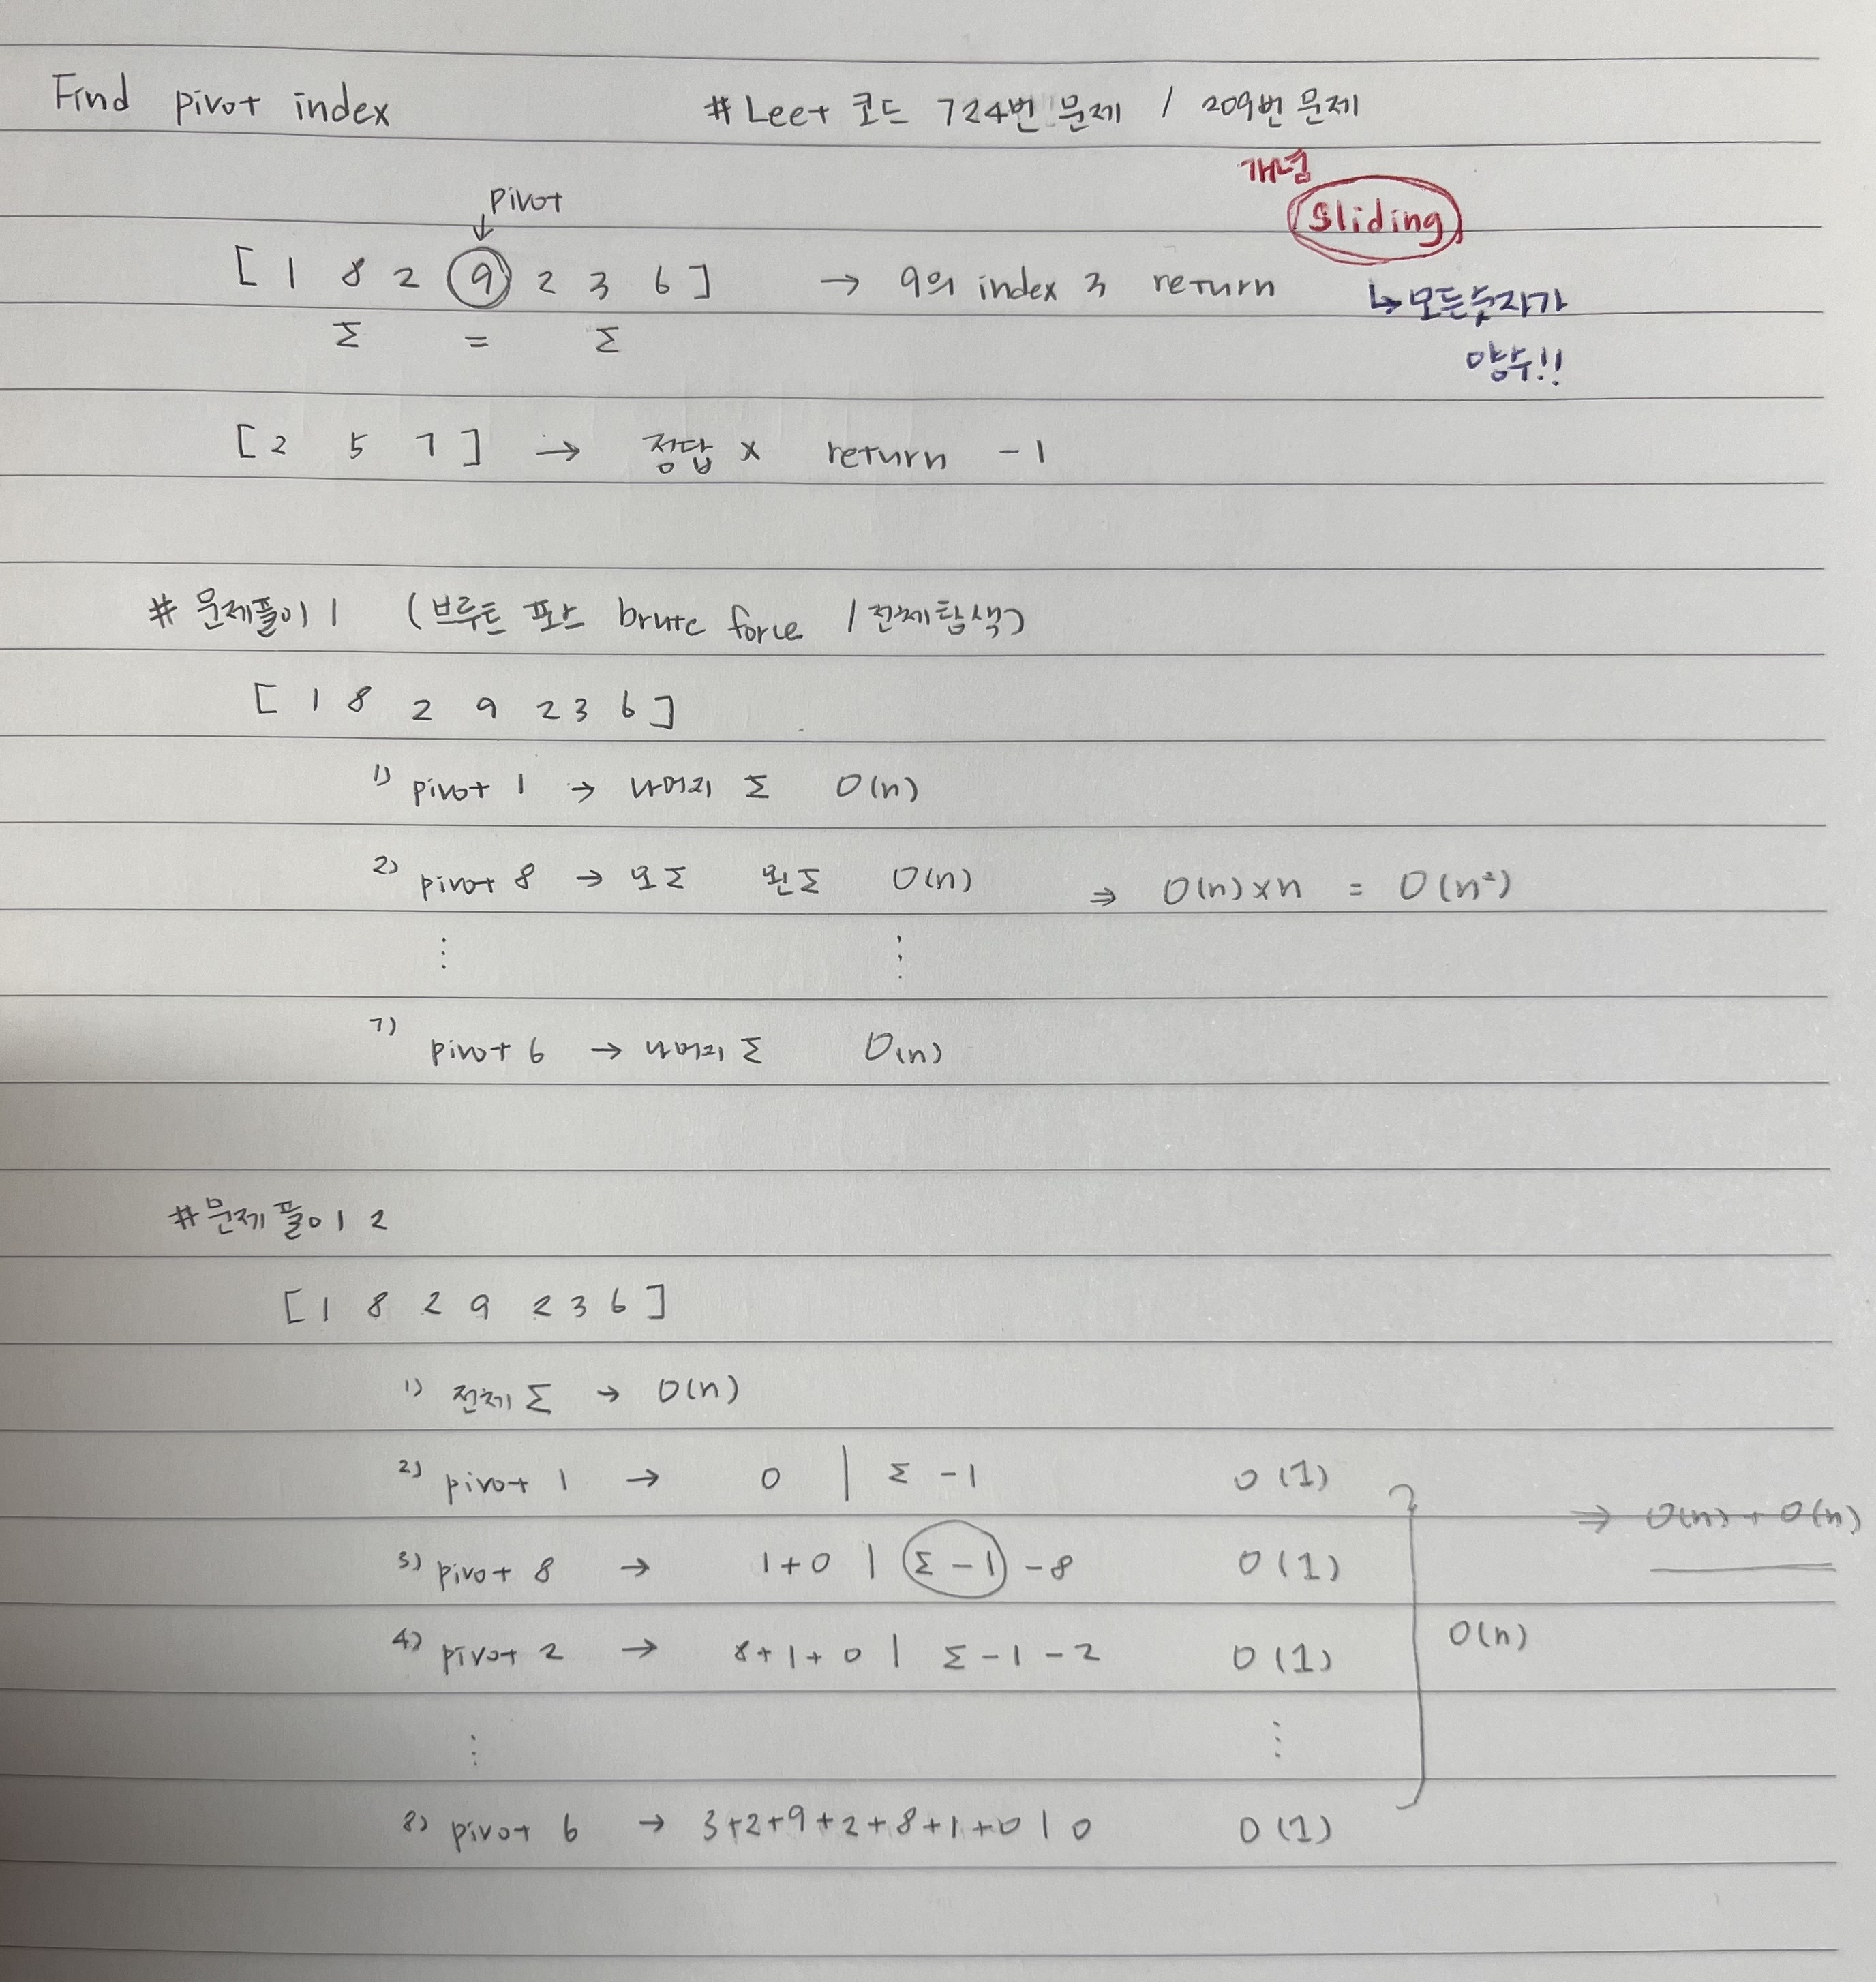 Find pivot index # Leet 코드 724번 문제 / 209번 문제
개념
Sliding
pivot
↓
[ 1 8 2 9 2 3 6 ] → 9의 index 3 return
↳ 모든숫자가
양수!!
Σ = Σ
[ 2 5 7 ] → 정답 x return -1
# 문제풀이 1 (브루트 포스 brute force / 전체탐색)
[ 1 8 2 9 2 3 6 ]
1) pivot 1 → 나머지 Σ O(n)
2) pivot 8 → 오Σ 왼Σ O(n) ⇒ O(n)×n = O(n²)
⋮ ⋮
7) pivot 6 → 나머지 Σ O(n)
# 문제풀이 2
[ 1 8 2 9 2 3 6 ]
1) 전체 Σ → O(n)
2) pivot 1 → 0 | Σ -1 O(1)
⇒ O(n) + O(n)
3) pivot 8 → 1+0 | Σ -1 -8 O(1)
4) pivot 2 → 8+1+0 | Σ -1 -2 O(1)
O(n)
⋮ ⋮
8) pivot 6 → 3+2+9+2+8+1+0 | 0 O(1)